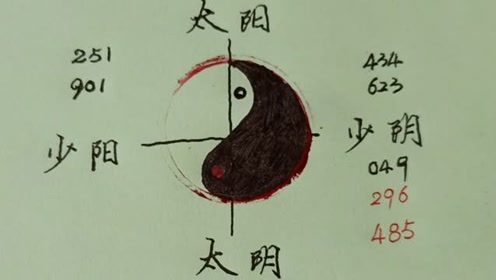 太阳
251
901
434
623
少阳
少阴
049
296
485
太阴